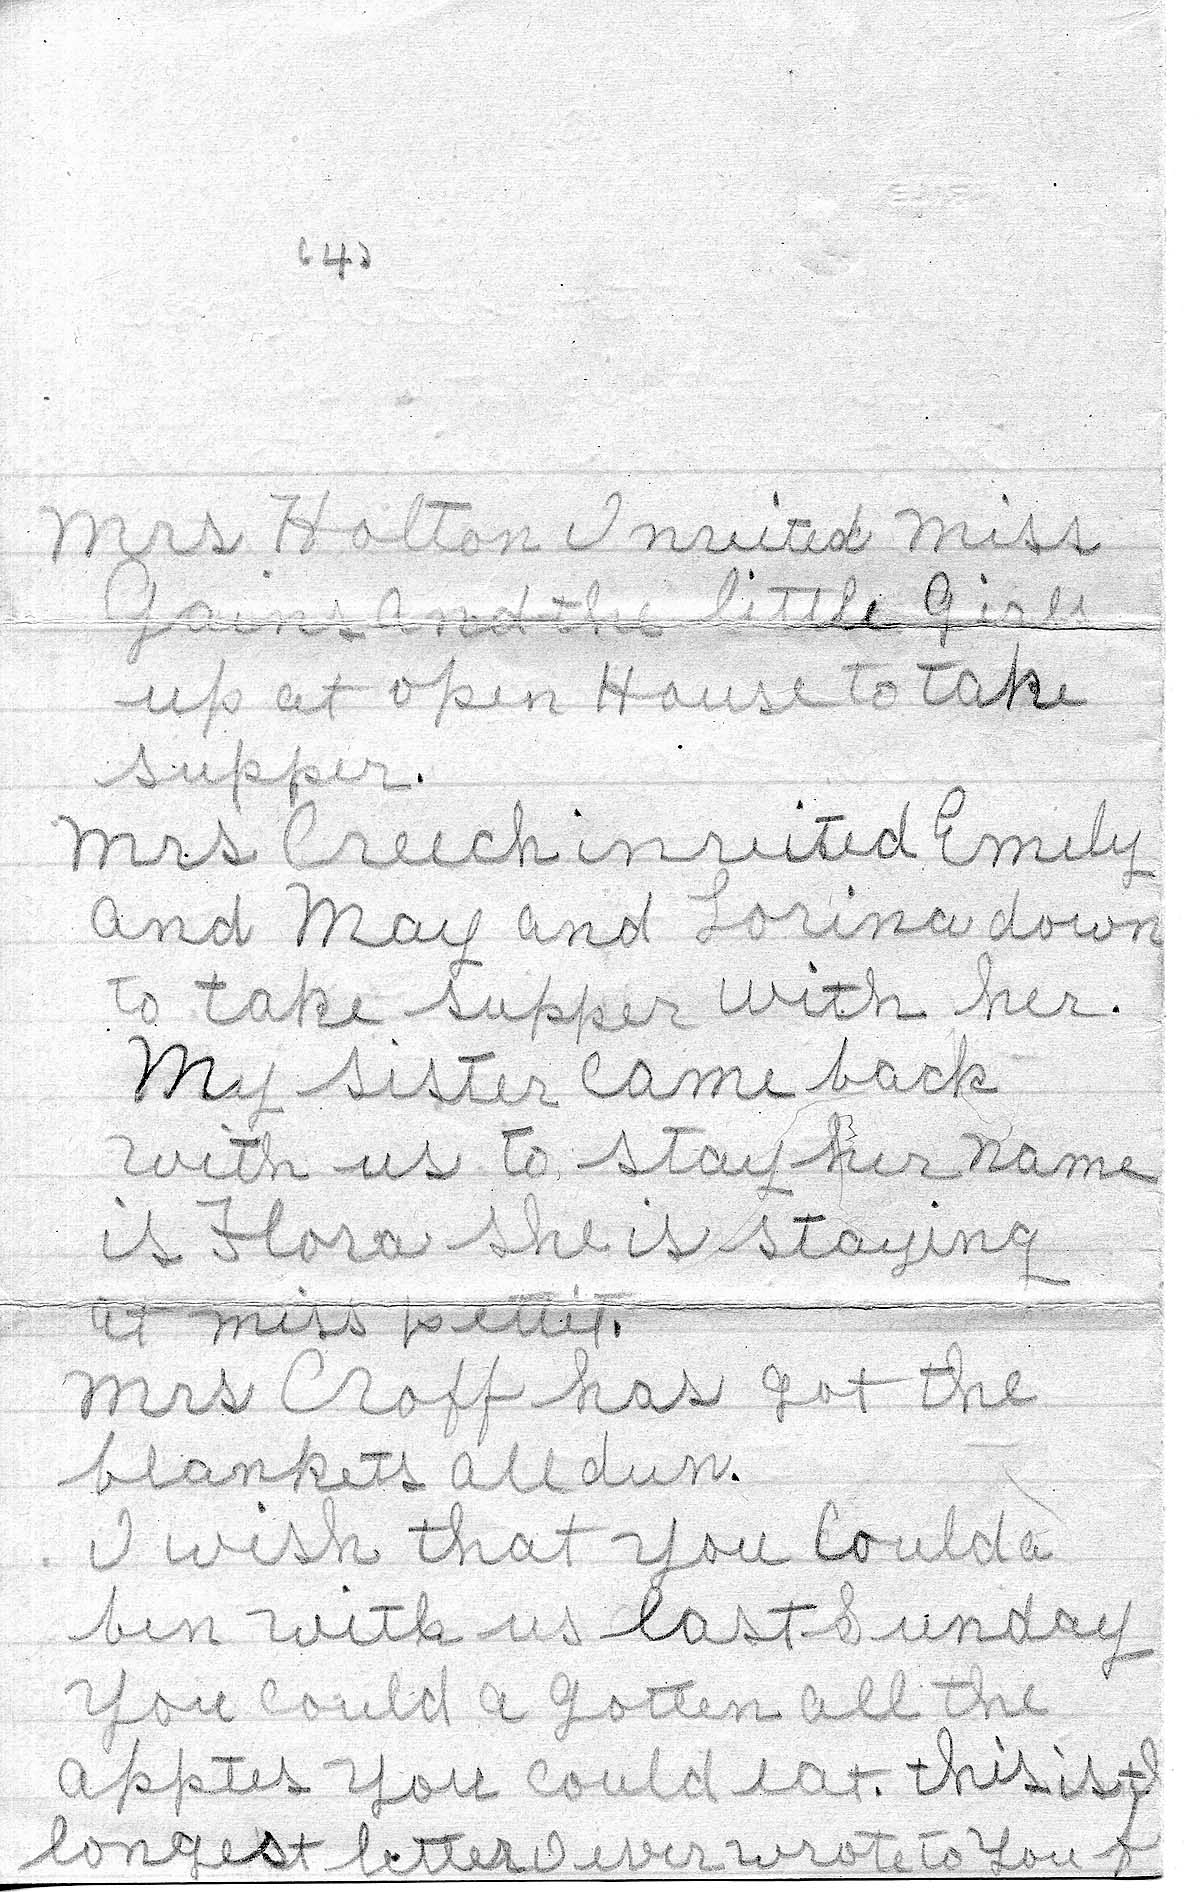 (4)
Mrs Holton Invited Miss
Gains and the little Girls
up at open House to take
supper.
Mrs Creech invited Emily
and May and Lorina down
to take supper with her.
My sister came back
with us to stay her name
is Flora she is staying
at miss pettit.
Mrs Croff has got the
blankets all dun.
I wish that you could a
ben with us last Sunday
you could a gotten all the
apptes you could eat. this is
longest letter I ever wrote to you